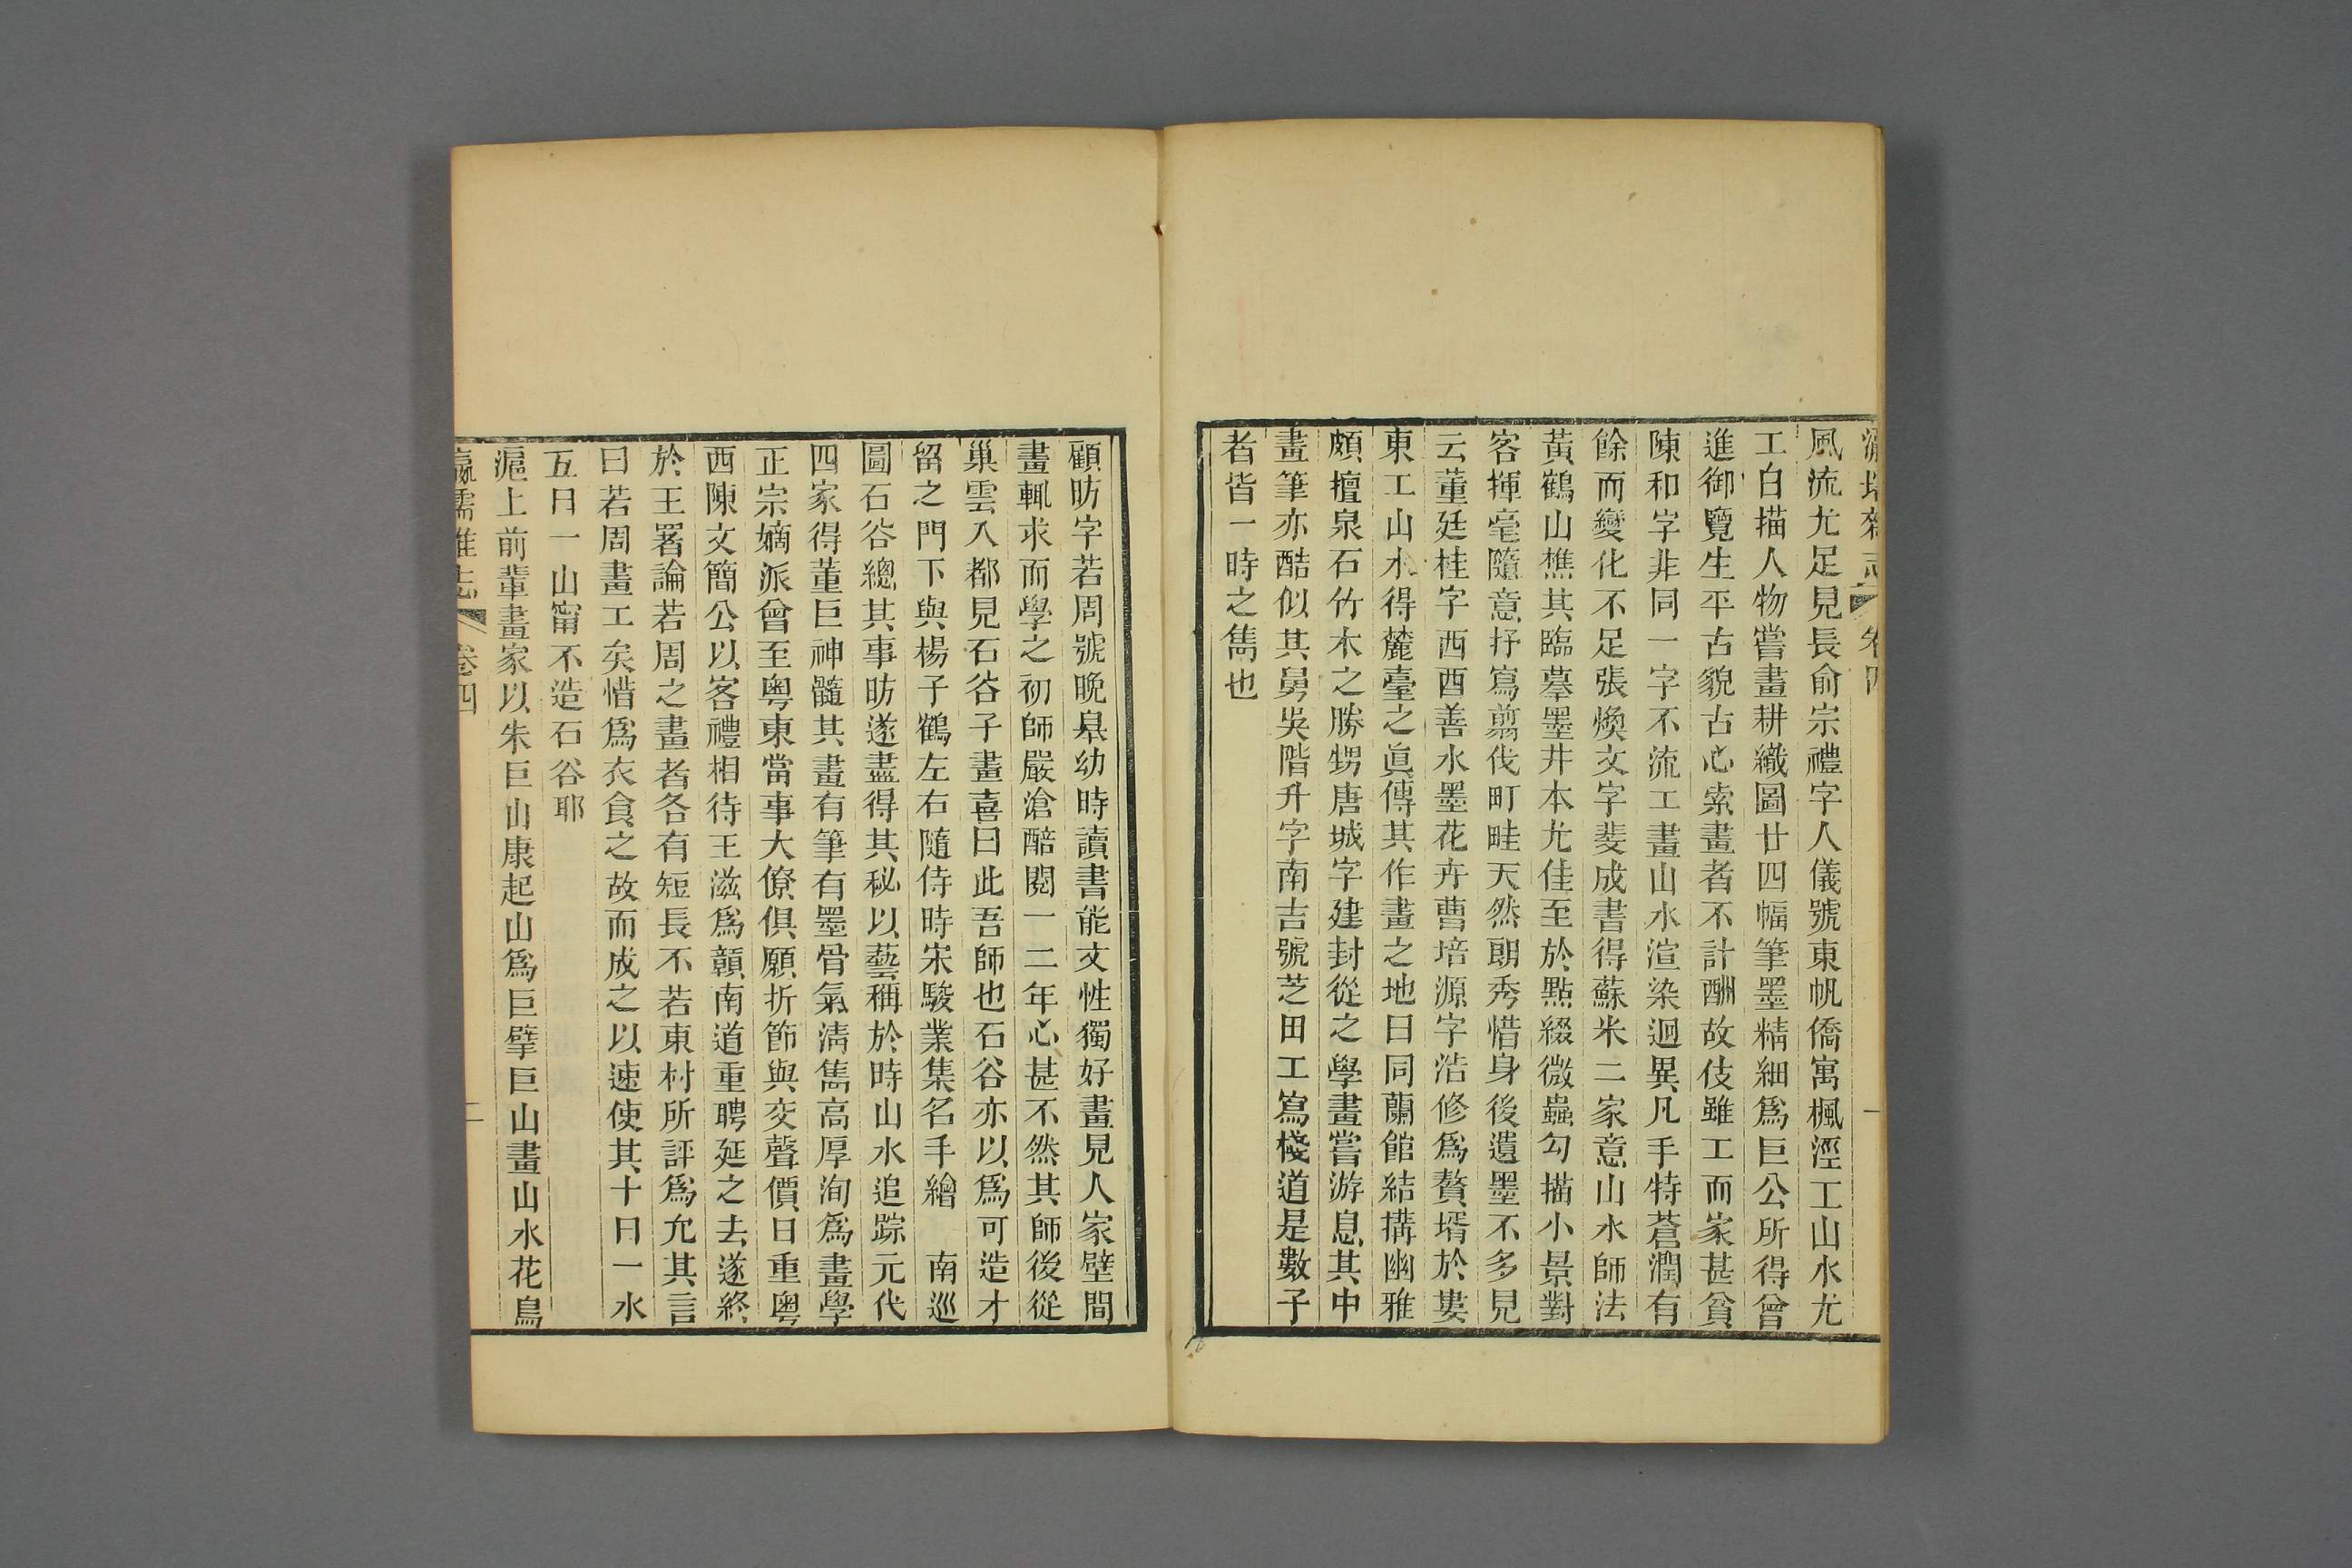 瀛壖雜志 卷四 一
風流尤足見長俞宗禮字人儀號東帆僑寓楓涇工山水尤
工白描人物嘗畫耕織圖廿四幅筆墨精細爲巨公所得曾
進御覽生平古貌古心索畫者不計酬故伎雖工而家甚貧
陳和字非同一字不流工畫山水渲染迥異凡手特蒼潤有
餘而變化不足張煥文字斐成書得蘇米二家意山水師法
黃鶴山樵其臨摹墨井本尤佳至於點綴微蟲勾描小景對
客揮毫隨意抒寫翦伐町畦天然朗秀惜身後遺墨不多見
云董廷桂字西酉善水墨花卉曹培源字浩修爲贅壻於婁
東工山水得麓臺之眞傳其作畫之地曰同蘭館結搆幽雅
頗擅泉石竹木之勝甥唐城字建封從之學畫嘗游息其中
畫筆亦酷似其舅吳階升字南吉號芝田工寫棧道是數子
者皆一時之雋也
顧昉字若周號晚皋幼時讀書能文性獨好畫見人家壁間
畫輒求而學之初師嚴滄醅閱一二年心甚不然其師後從
巢雲入都見石谷子畫喜曰此吾師也石谷亦以爲可造才
留之門下與楊子鶴左右隨侍時宋駿業集名手繪 南巡
圖石谷總其事昉遂盡得其秘以藝稱於時山水追踪元代
四家得董巨神髓其畫有筆有墨骨氣淸雋高厚洵爲畫學
正宗嫡派曾至粵東當事大僚俱願折節與交聲價日重粵
西陳文簡公以客禮相待王滋爲贛南道重聘延之去遂終
於王署論若周之畫者各有短長不若東村所評爲允其言
曰若周畫工矣惜爲衣食之故而成之以速使其十日一水
五日一山甯不造石谷耶
滬上前輩畫家以朱巨山康起山爲巨擘巨山畫山水花鳥
瀛壖雜志 卷四 二